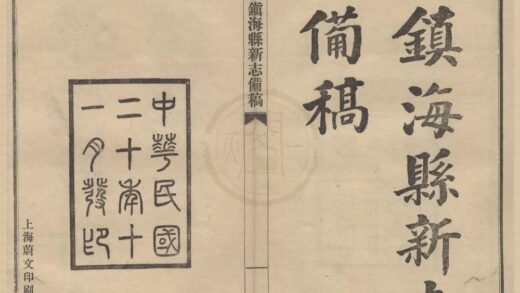 鎮海縣新
備稿
鎮海縣新志備稿
一
中華民國
二十年十
一月發印
上海蔚文印刷